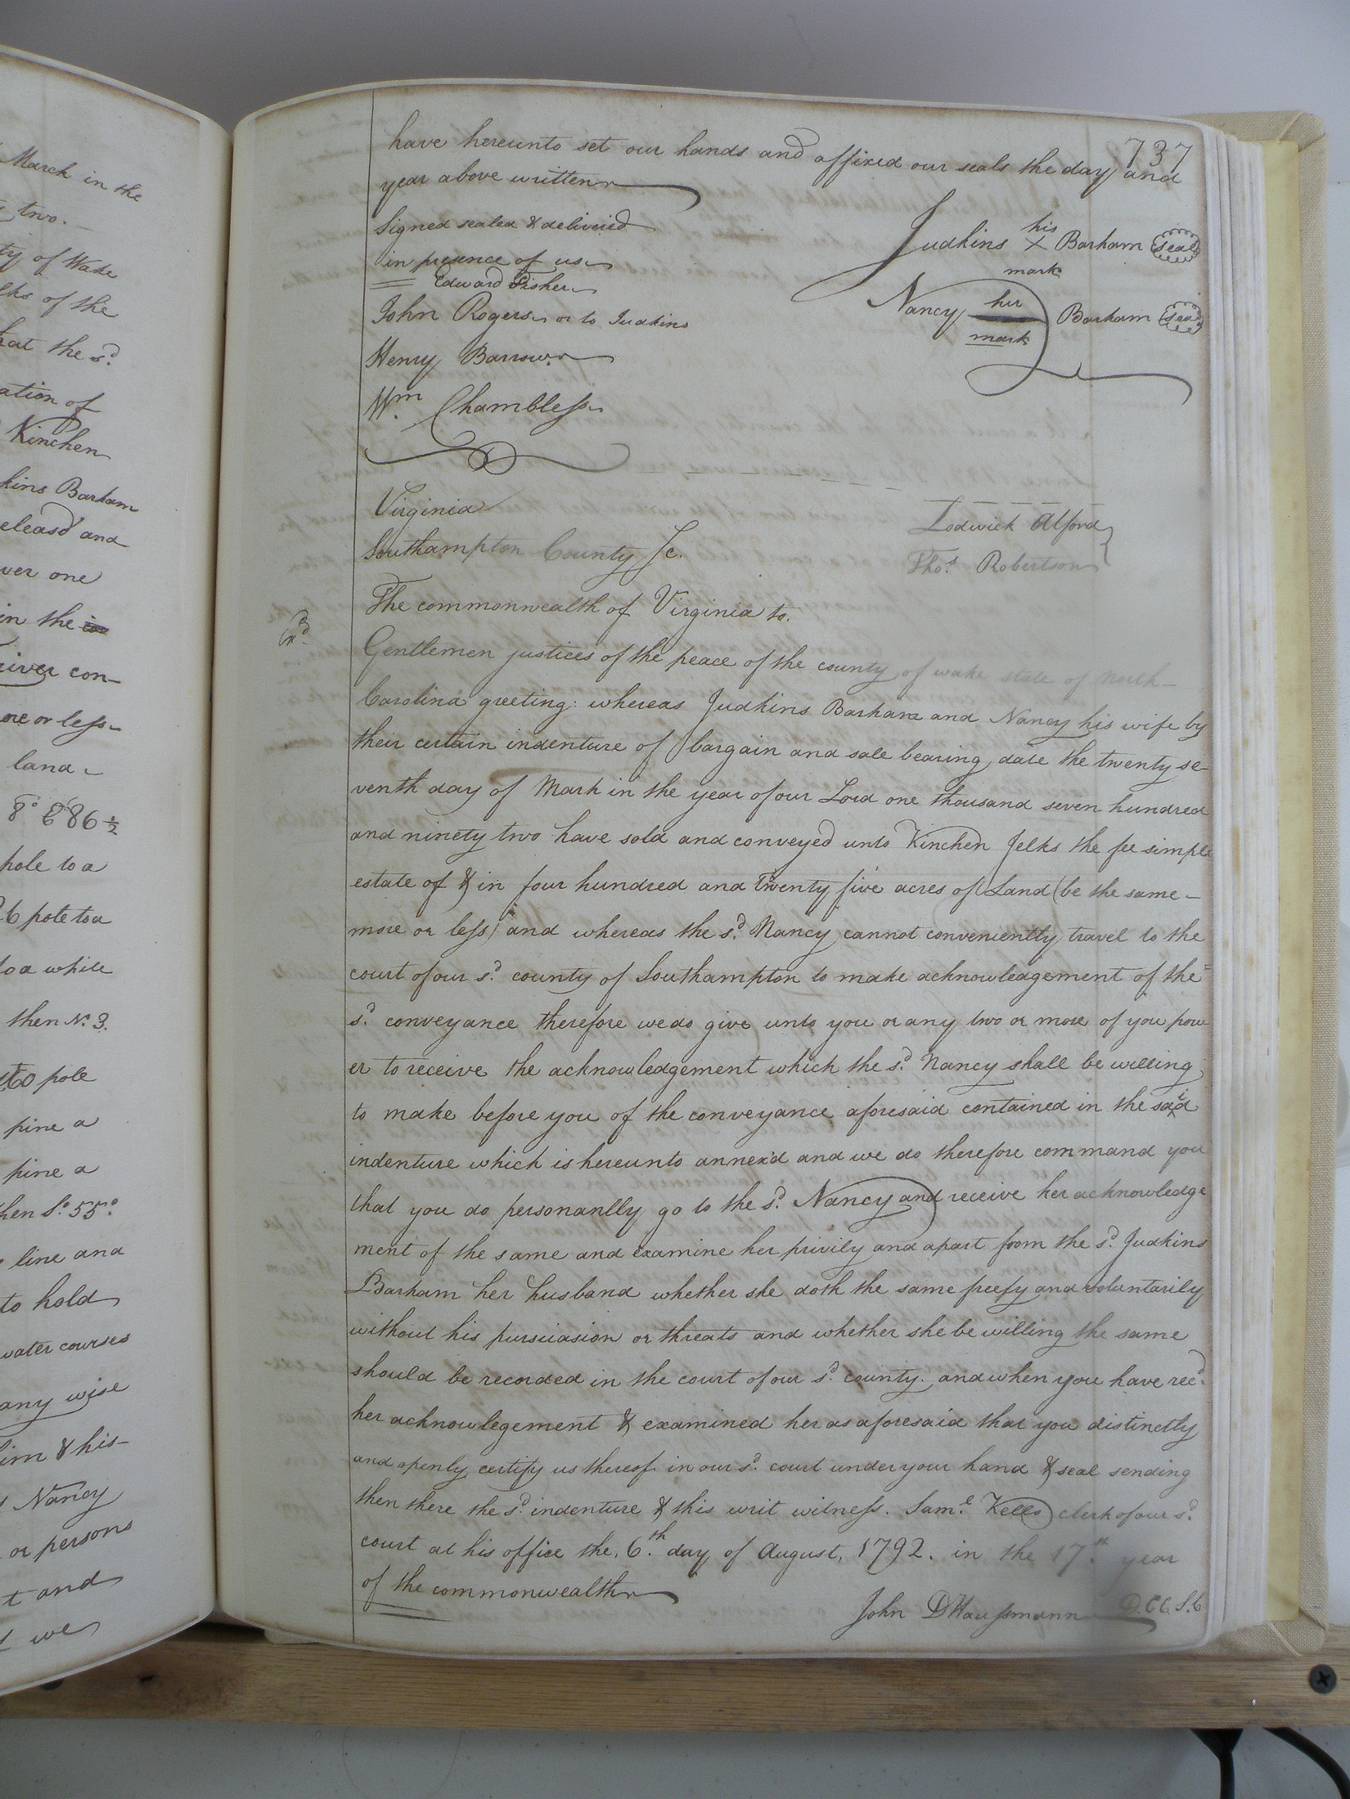 March in the
two.
ty of Wake
lks of the
hat the sd.
ation of
Kinchen
kins Barham
eleasd and
ver one
in the
river con-
ore or less
land
8° E 86 ½
pole to a
26 pole to a
to a white
then No. 3.
160 pole
pine a
pine a
then So. 55°
line and
to hold
water courses
any wise
him & his
Nancy
or persons
t and
we
737
have hereunto set our hands and affixed our seals the day and
year above written
Signed sealed & delivered
in presence of us
Edward Fisher
John Rogers as to Judkins
Henry Barrow
Wm. Chambless
his
Judkins X Barham seal
mark
her
Nancy Barham seal
mark
Virginia
Southampton County Sc.
Lodwick Alford
Thos. Robertson
The commonwealth of Virginia to.
Exd.
Gentlemen justices of the peace of the county of wake state of North-
Carolina greeting: whereas Judkins Barham and Nancy his wife by
their certain indenture of bargain and sale bearing date the twenty se-
venth day of Mark in the year of our Lord one thousand seven hundred
and ninety two have sold and conveyed unto Kinchen Jelks the fee simple
estate of & in four hundred and twenty five acres of Land (be the same-
more or less) and whereas the sd. Nancy cannot conveniently travel to the
court of our sd. county of Southampton to make acknowledgement of the=
sd. conveyance therefore we do give unto you or any two or more of you pow
er to receive the acknowledgement which the sd. Nancy shall be willing
to make before you of the conveyance aforesaid contained in the said
indenture which is hereunto annex'd and we do therefore command you
that you do personanlly go to the sd. Nancy and receive her acknowledge
ment of the same and examine her privily and apart from the sd. Judkins
Barham her husband whether she doth the same freely and voluntarily
without his persuasion or threats and whether she be willing the same
should be recorded in the court of our sd. county. and when you have recd.
her acknowlegement & examined her as aforesaid that you distinctly
and openly certify us thereof in our sd. court under your hand & seal sending
then there the sd. indenture & this writ witness. Saml. Kello clerk of our sd.
court at his office the, 6th. day of August, 1792. in the 17th. year
of the commonwealth
John D Haussmann D.C.C.S.C